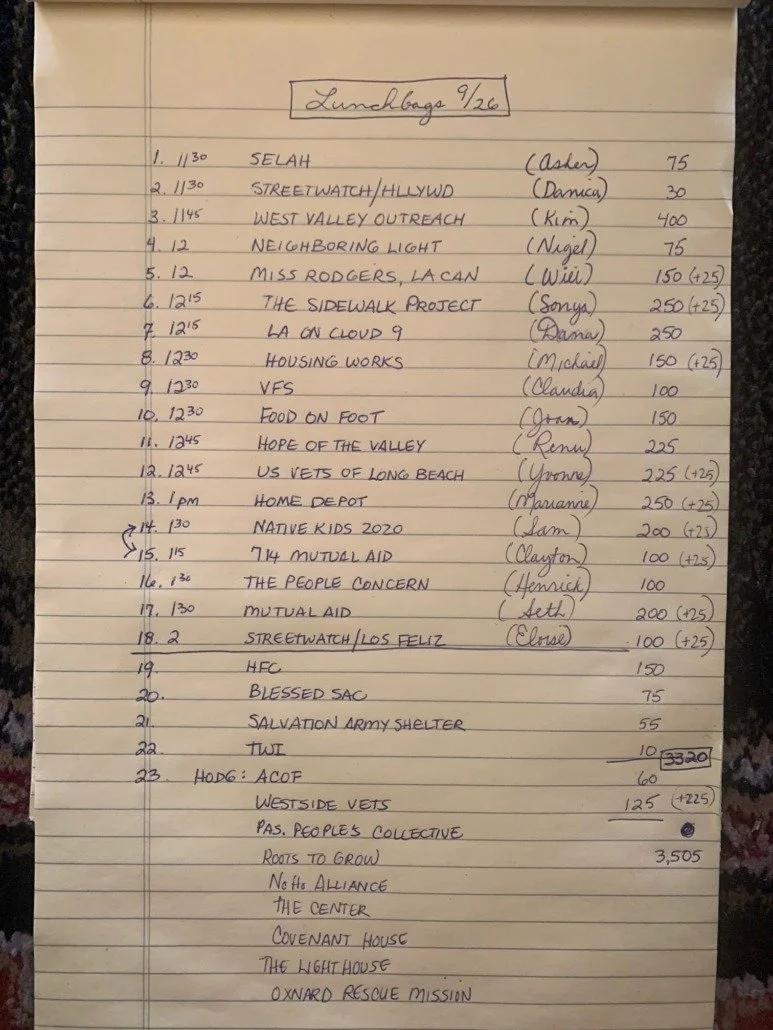 Lunchbags 9/26
1. 1130 SELAH (Asher) 75
2. 1130 STREETWATCH/HLLYWD (Danica) 30
3. 1145 WEST VALLEY OUTREACH (Kim) 400
4. 12 NEIGHBORING LIGHT (Nigel) 75
5. 12 MISS RODGERS, LA CAN 150 (+25)
6. 1215 THE SIDEWALK PROJECT (Sonya) 250 (+25)
7. 1215 LA ON CLOUD 9 (Dana) 250
8. 1230 HOUSING WORKS (Michael) 150 (+25)
9. 1230 VFS (Claudia) 100
10. 1230 FOOD ON FOOT (Joan) 150
11. 1245 HOPE OF THE VALLEY (Renu) 225
12. 1245 US VETS OF LONG BEACH (Yvonne) 225 (+25)
13. 1pm HOME DEPOT (Marianne) 250 (+25)
14. 130 NATIVE KIDS 2020 (Sam) 200 (+25)
15. 115 714 MUTUAL AID (Clayton) 100 (+25)
16. 130 THE PEOPLE CONCERN (Henrick) 100
17. 130 MUTUAL AID (Seth) 200 (+25)
18. 2 STREETWATCH/LOS FELIZ (Eloise) 100 (+25)
19. HFC 150
20. BLESSED SAC 75
21. SALVATION ARMY SHELTER 55
22. TWI 10 3320
23. HODG: ACOF 60
WESTSIDE VETS 125 (+225)
PAS. PEOPLE'S COLLECTIVE
ROOTS TO GROW 3,505
NoHo ALLIANCE
THE CENTER
COVENANT HOUSE
THE LIGHTHOUSE
OXNARD RESCUE MISSION